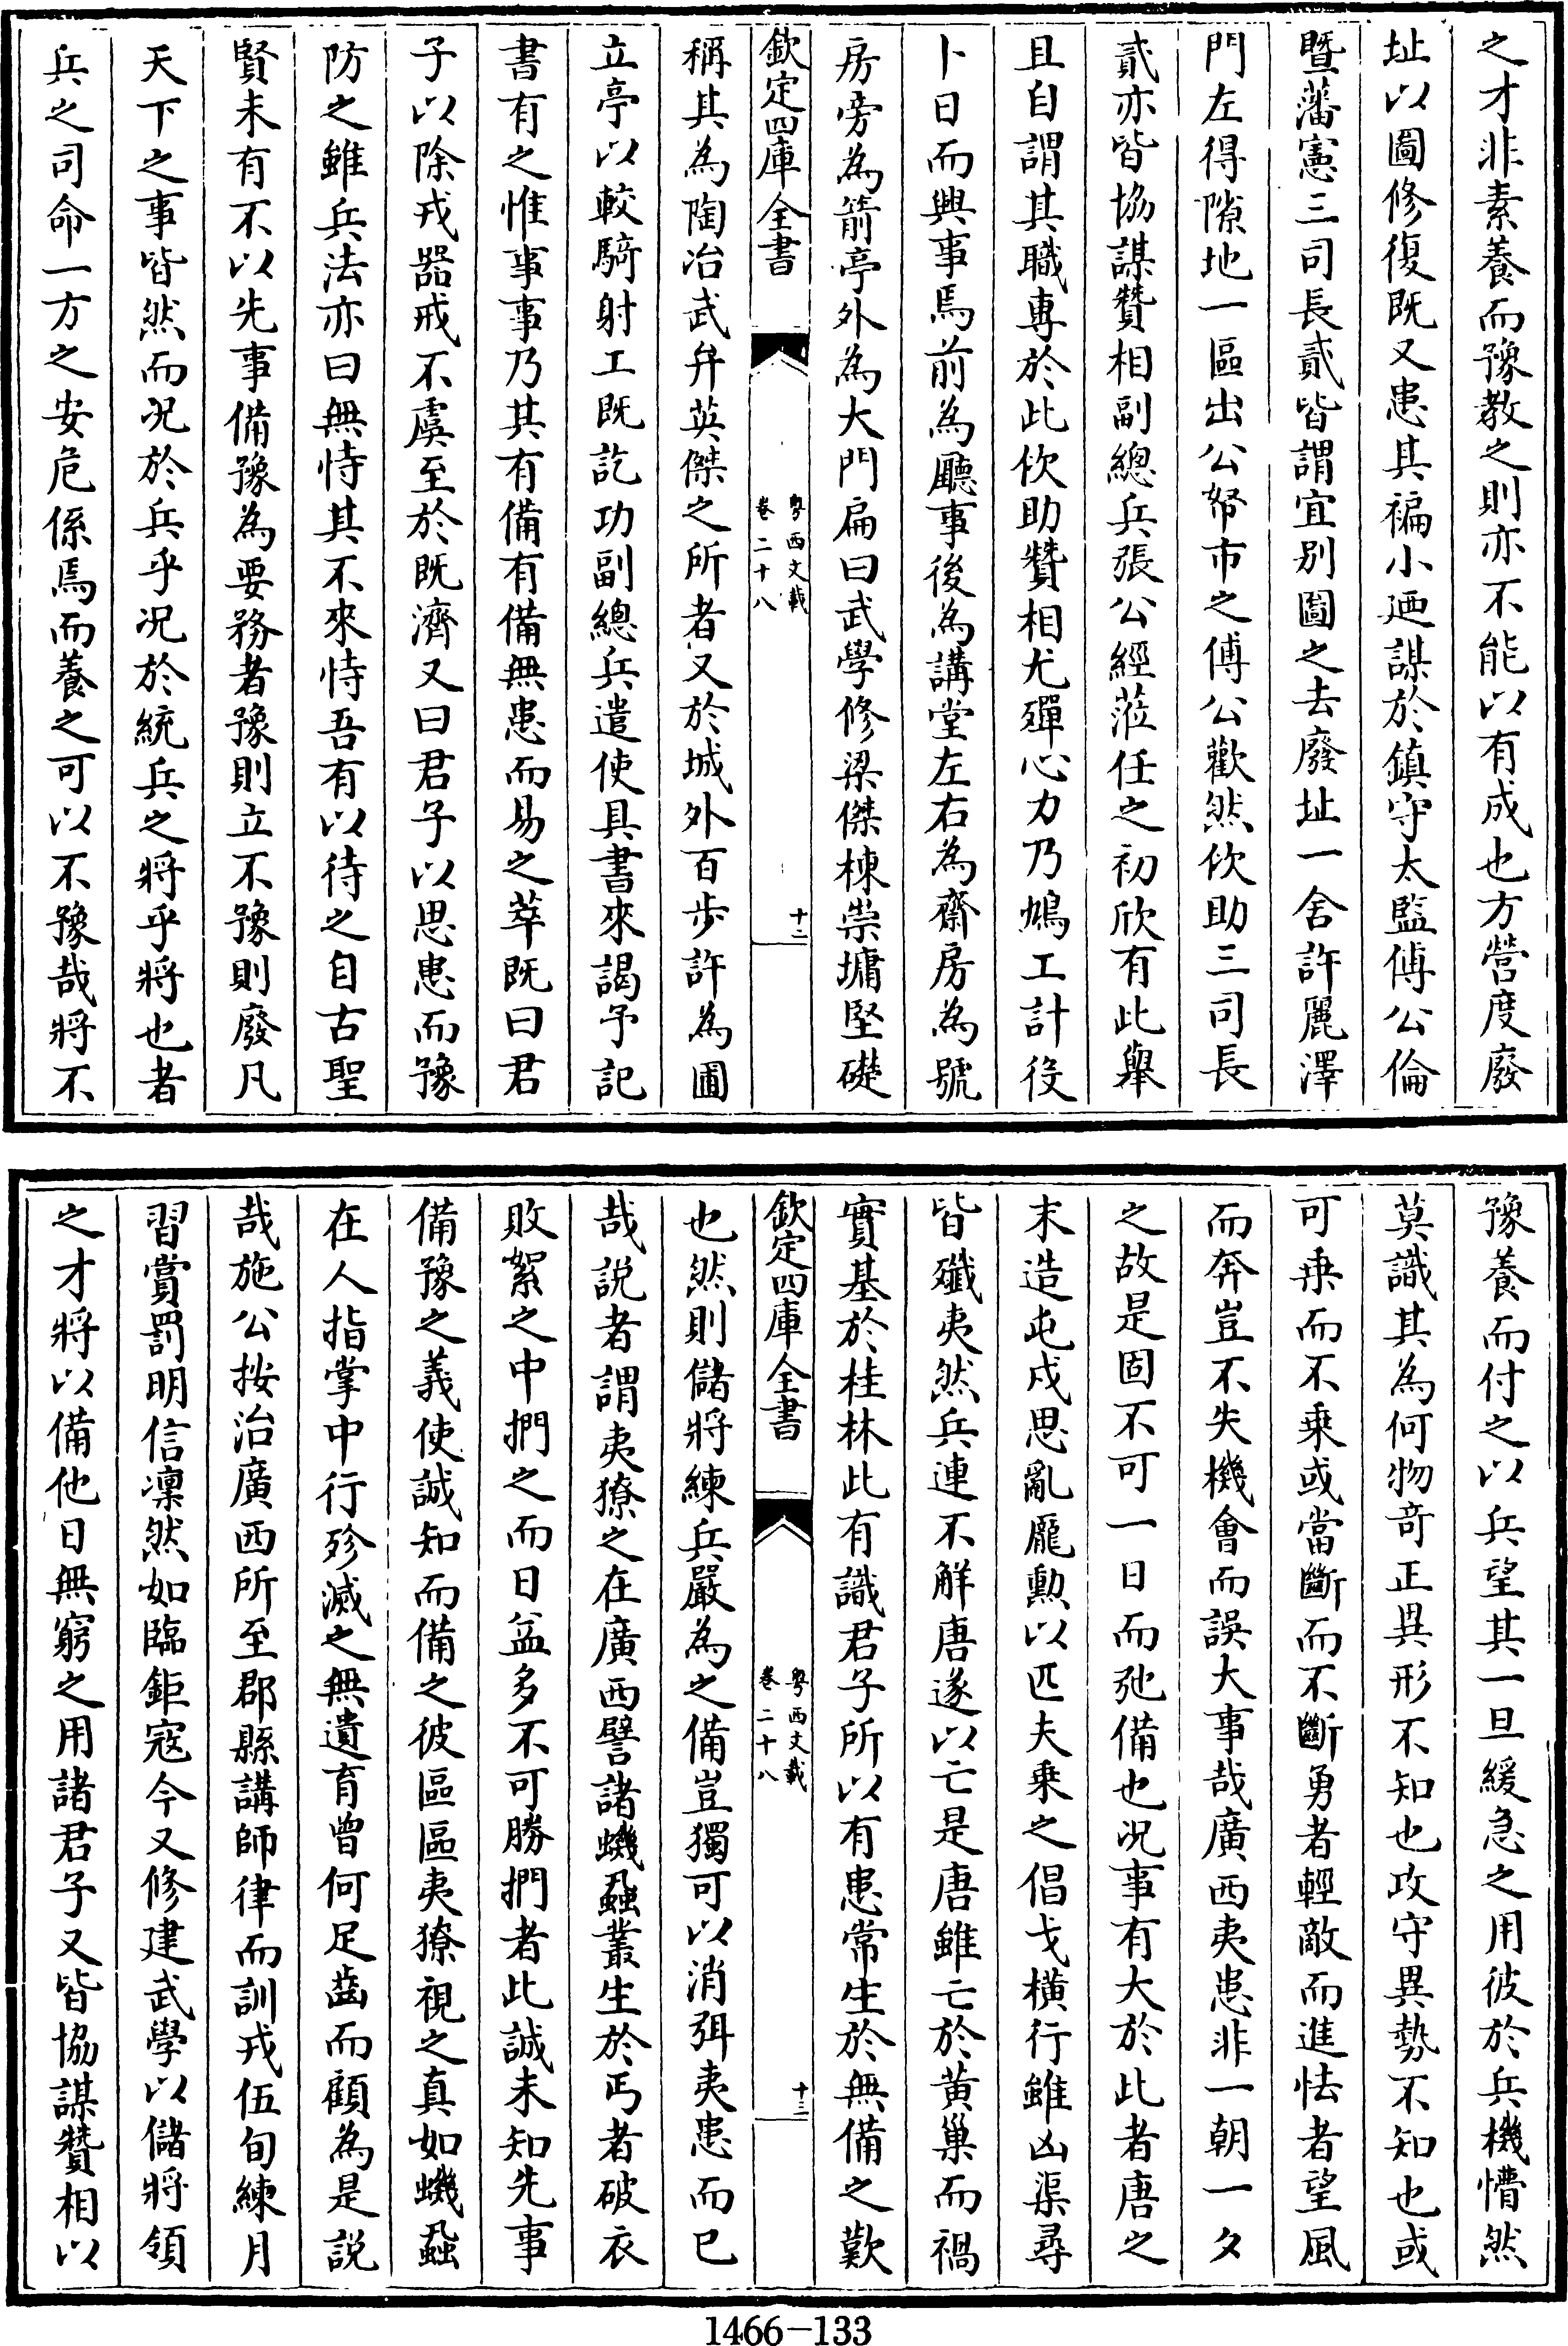 之才非素養而豫教之則亦不能以有成也方營度廢
址以圖修復既又患其褊小廼謀於鎮守太監傅公倫
暨藩憲三司長貳皆謂宜別圖之去廢址一舍許麗澤
門左得隙地一區出公帑市之傅公歡然佽助三司長
貳亦皆協謀贊相副總兵張公經蒞任之初欣有此舉
且自謂其職專於此佽助贊相尤殫心力乃鳩工計役
卜日而興事焉前為廳事後為講堂左右為齋房為號
房旁為箭亭外為大門扁曰武學修梁傑棟崇墉堅礎
欽定四庫全書
粤西文載
卷二十八
十二
稱其為陶冶武弁英傑之所者又於城外百步許為圃
立亭以較騎射工既訖功副總兵遣使具書來謁予記
書有之惟事事乃其有備有備無患而易之萃既曰君
子以除戎器戒不虞至於既濟又曰君子以思患而豫
防之雖兵法亦曰無恃其不來恃吾有以待之自古聖
賢未有不以先事備豫為要務者豫則立不豫則廢凡
天下之事皆然而况於兵乎况於統兵之將乎將也者
兵之司命一方之安危係焉而養之可以不豫哉將不
豫養而付之以兵望其一旦緩急之用彼於兵機懵然
莫識其為何物奇正異形不知也攻守異勢不知也或
可乗而不乗或當斷而不斷勇者輕敵而進怯者望風
而奔豈不失機會而誤大事哉廣西夷患非一朝一夕
之故是固不可一日而弛備也况事有大於此者唐之
末造屯戍思亂龎勲以匹夫乗之倡戈橫行雖凶渠尋
皆殲夷然兵連不解唐遂以亡是唐雖亡於黄巢而禍
實基於桂林此有識君子所以有患常生於無備之歎
欽定四庫全書
粤西文載
卷二十八
十三
也然則儲將練兵嚴為之備豈獨可以消弭夷患而已
哉說者謂夷獠之在廣西譬諸蟣蝨叢生於丐者破衣
敗絮之中捫之而日益多不可勝捫者此誠未知先事
備豫之義使誠知而備之彼區區夷獠視之真如蟣蝨
在人指掌中行殄滅之無遺育曾何足齒而顧為是説
哉施公按治廣西所至郡縣講師律而訓戎伍旬練月
習賞罰明信凜然如臨鉅寇今又修建武學以儲將領
之才將以備他日無窮之用諸君子又皆協謀贊相以
1466-133